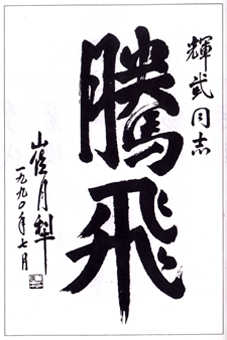 輝武同志
騰飛
崔月犁
一九九〇年七月